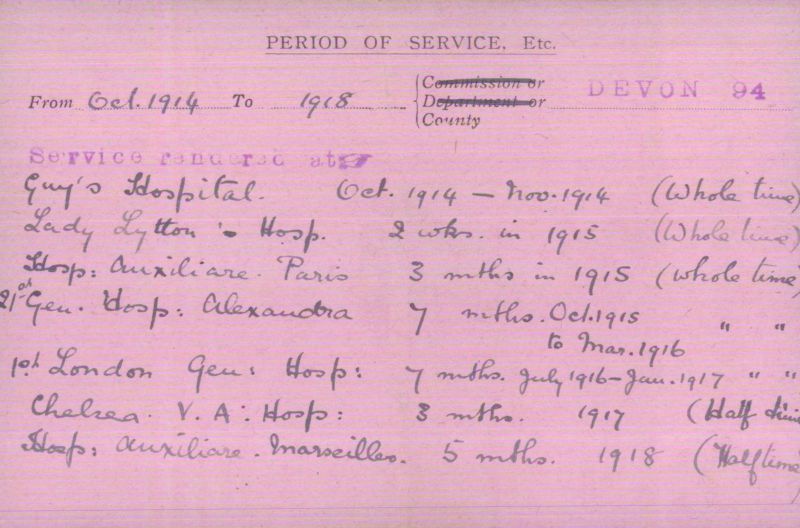 PERIOD OF SERVICE, Etc.
From Oct. 1914 To 1918
Commission or
Department or
County
DEVON 94
Service rendered at:-
Guy's Hospital. Oct. 1914 — Nov. 1914 (Whole time)
Lady Lytton's Hosp. 2 wks. in 1915 (Whole time)
Hosp: Auxiliare. Paris 3 mths in 1915 (Whole time)
21st Gen. Hosp: Alexandra 7 mths. Oct. 1915
to Mar. 1916 " "
1st London Gen: Hosp: 7 mths. July 1916–Jan. 1917 " "
Chelsea. V. A: Hosp: 3 mths. 1917 (Half time
Hosp: Auxiliare. Marseilles. 5 mths. 1918 (Half time)